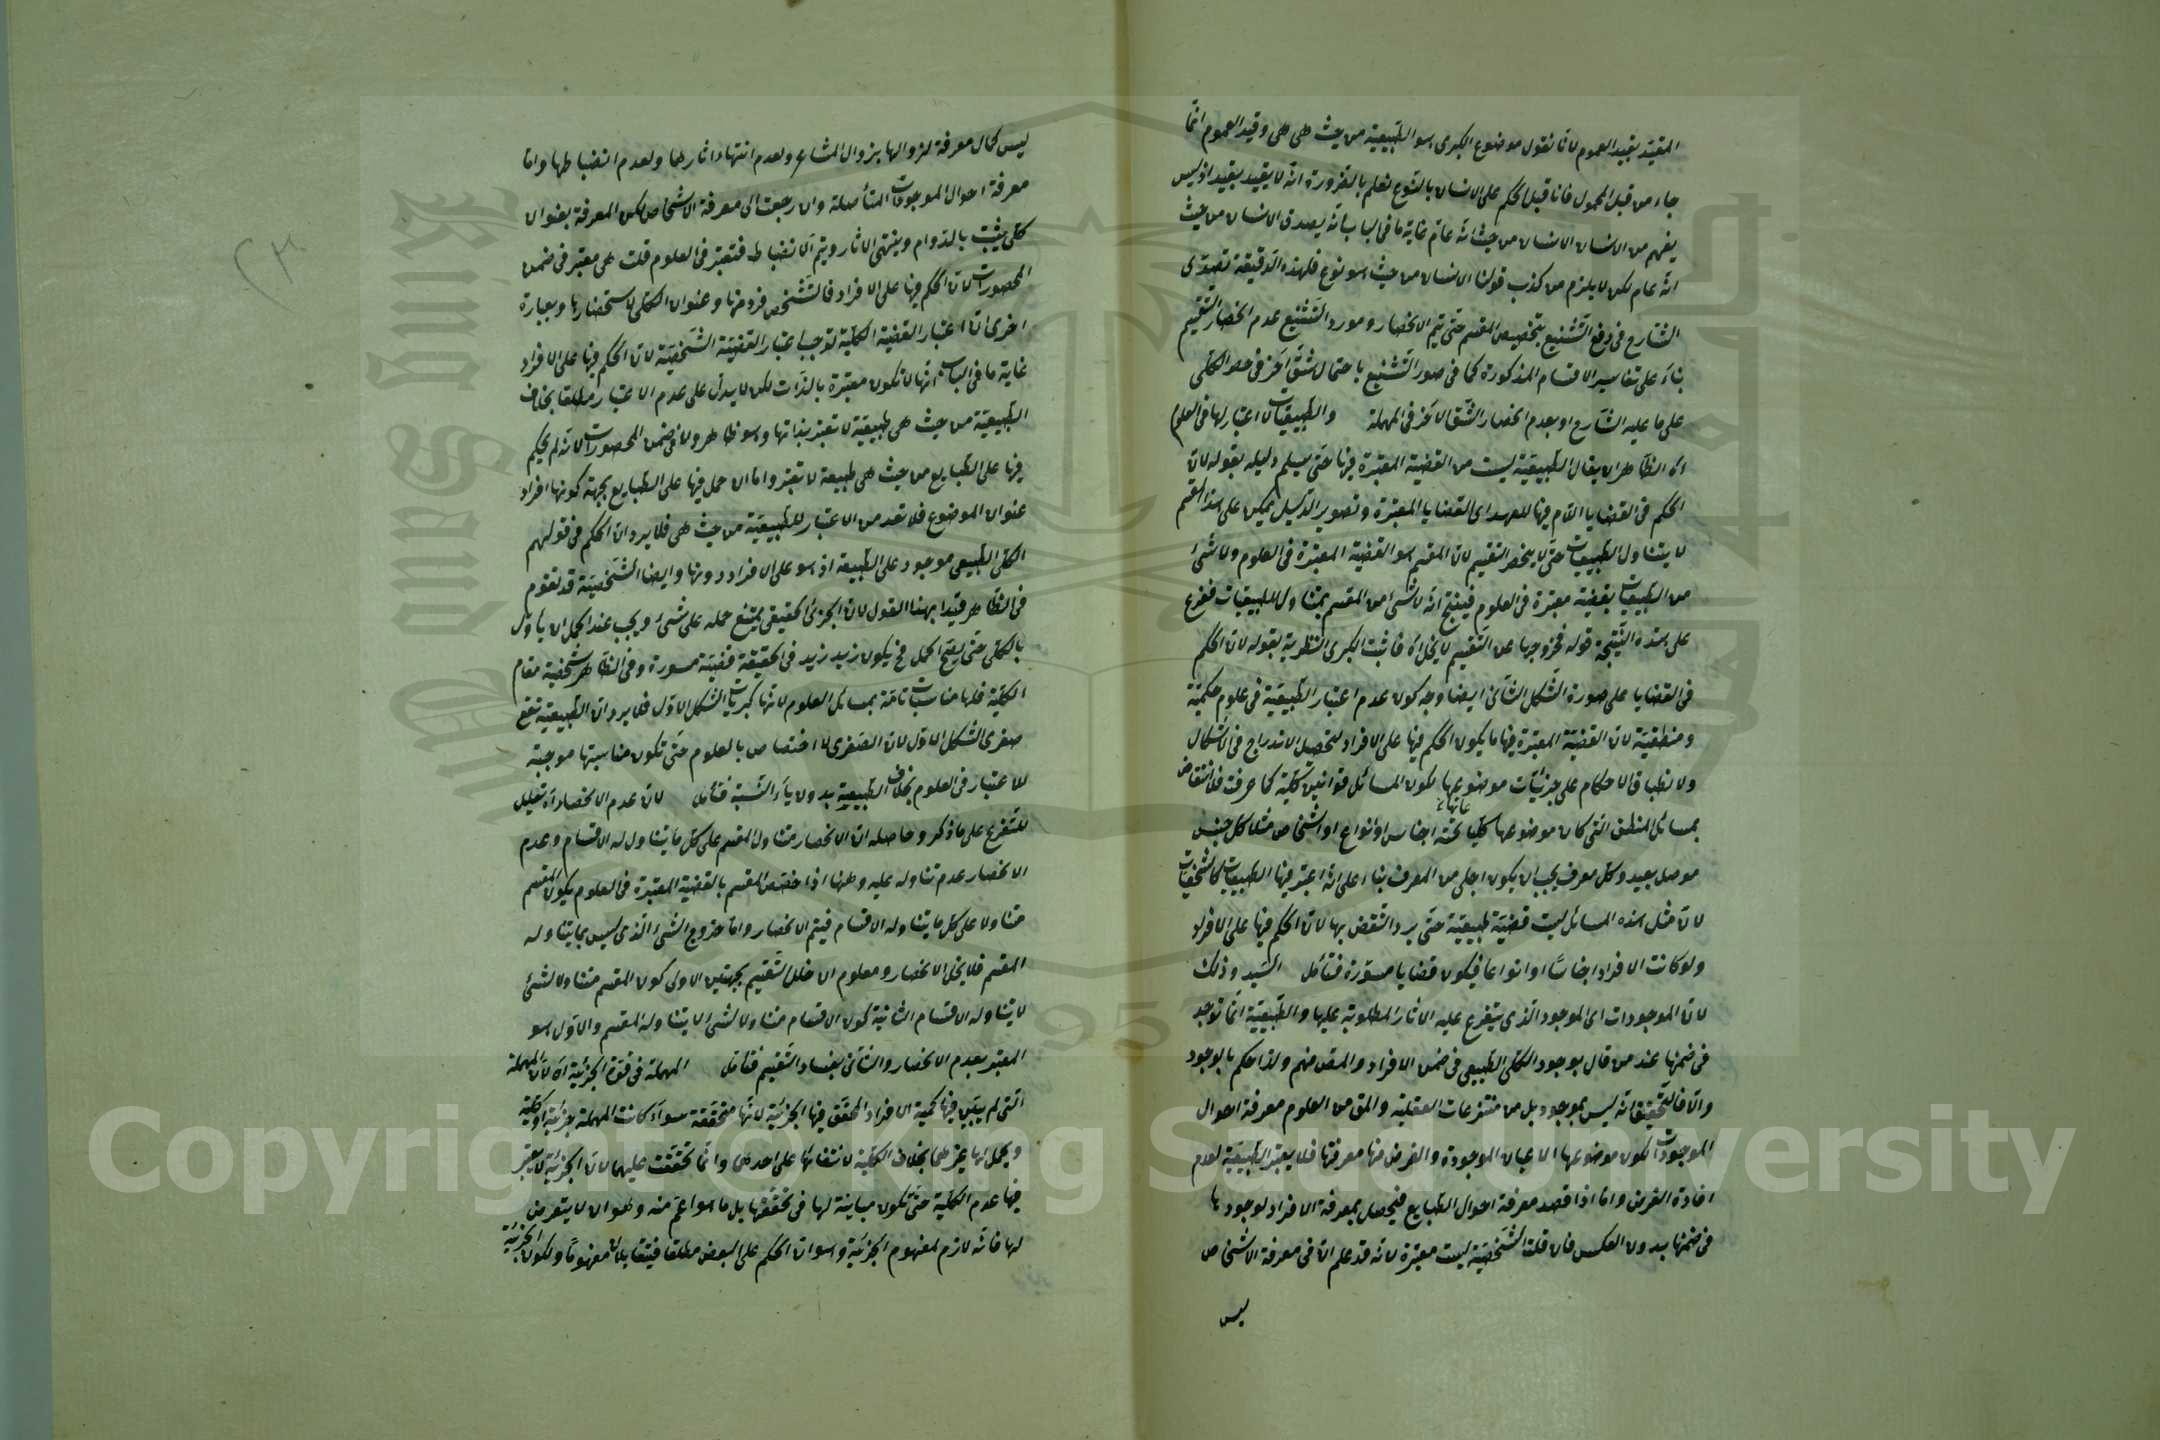 المقيد بقيد العموم لانا نقول موضوع الكبرى هو الطبيعية من حيث هى هى وقيد العموم انما
جاء من قبل المحمول فانا قبل الحكم على الانسان بالنوع نعلم بالضرورة انه لا يقيد بقيد اذ ليس
يفهم من الانسان الانسان من حيث انه عام غاية ما فى الباب انه يصدق الانسان من حيث
انه عام لكن لا يلزم من كذب قولنا الانسان من حيث هو نوع فلهذه الدقيقة تصدى
الشارح فى دفع التشنيع بتخصيص المقسم حتى يتم الانحصار ومورد التشنيع عدم انحصار التقسيم
بناء على تفاسير الاقسام المذكورة كما فى صور التشنيع باحتمال شق آخر فى حصر الكلى
على ما عليه الشارح او بعدم انحصار الشق الآخر فى المهملة والطبيعيات لا اعتبار لها فى العلوم
اه الظاهر ان يقال الطبيعية ليست من القضية المعتبرة فيها حتى يسلم دليله بقوله لان
الحكم فى القضايا اللام فيها للعهد اى القضايا المعتبرة وتصوير الدليل يمكن على هذا المقسم
لا يتناول الطبيعيات حتى لا ينحصر التقسيم لان المقسم هو القضية المعتبرة فى العلوم ولا شئ
من الطبيعيات بقضية معتبرة فى العلوم فينتج انه لا شئ من المقسم يتناول للطبيعيات ففرع
على هذه النتيجة قوله فخروجها عن التقسيم لا يخل اه فاثبت الكبرى النظرية بقوله لان الحكم
فى القضايا على صورة الشكل الثانى ايضا وجه كون عدم اعتبار الطبيعية فى علوم حكمية
ومنطقية لان القضية المعتبرة فيها ما يكون الحكم فيها على الافراد لتحصل الاندراج فى الاشكال
ولانطباق الاحكام على جزئيات موضوعها لكون المسائل قوانين كلية كما عرفت فلا انتقاض
بمسائل المنطق التى كان موضوعها كليا تحته اجناس او انواع او اشخاص مثلا كل جنس
موصل بعيد وكل معرف يجب ان يكون اجلى من المعرف بناء على انه اعتبر فيها الطبيعيات كالشخصيات
لان مثل هذه المسائل ليست قضية طبيعية حتى يرد النقض بها لان الحكم فيها على الافراد
ولو كانت الافراد اجناسا او انواعا فيكون قضايا مسورة فتأمل السيد وذلك
لان الموجودات اى الموجود الذى يتفرع عليه الآثار المطلوبة عليها والطبيعية انما توجد
فى ضمنها عند من قال بوجود الكلى الطبيعى فى ضمن الافراد والمص منهم ولذا حكم بالوجود
والا فالتحقيق انه ليس بموجود بل من منتزعات العقلية والمق من العلوم معرفة احوال
الموجودات لكون موضوعها الاعيان الموجودة والغرض منها معرفتها فلا يعتبر الطبيعية لعدم
افادة الغرض واما اذا قصد معرفة احوال الطبايع فيحصل بمعرفة الافراد لوجودها
فى ضمنها بدون العكس فان قلت الشخصية ليست معتبرة لانه قد علم ان فى معرفة الاشخاص
ليس
ليس كمال معرفة لزوالها بزوال المشاعر ولعدم انتهاء اثارها ولعدم انضباطها واما
معرفة احوال الموجودات المتأصلة وان رجعت الى معرفة الاشخاص لكن المعرفة بعنوان
كلى يثبت بالدوام وينتهى الاثار ويتم الانضباط فتعتبر فى العلوم قلت هى معتبر فى ضمن
المحصورات لان الحكم فيها على الافراد فالتشخص فرد منها وعنوان الكلى لاستحضارها وبعبارة
اخرى ان اعتبار القضية الكلية توجب اعتبار القضية الشخصية لان الحكم فيها على الافراد
غاية ما فى الباب انها لا تكون معتبرة بالذات لكن لا يدل على عدم الاعتبار مطلقا بخلاف
الطبيعية من حيث هى طبيعية لا تعتبر بذاتها وهو ظاهر ولا فى ضمن المحصورات لانه لم يحكم
فيها على الطبايع من حيث هى طبيعة لا تعتبر واما ان حمل فيها على الطبايع بجهة كونها افراد
عنوان الموضوع فلا تعد من الاعتبار للطبيعية من حيث هى فلا يرد ان الحكم فى قولهم
الكلى الطبيعى موجود على الطبيعة اذ هو على الافراد دونها وايضا الشخصية قد تقوم
فى الظاهر قيدا بهذا القول لان الجزئى الحقيقى يمتنع حمله على شئ ويجب عند الحمل ان يأول
بالكلى حتى يصح الحمل فح يكون زيد زيد فى الحقيقة قضية مسورة وفى الظاهر شخصية مقام
الكلية فلها مناسبات تامة بمسائل العلوم لانها كبريات الشكل الاول فلا يرد ان الطبيعية تقع
صغرى الشكل الاول لان الصغرى لا اختصاص بالعلوم حتى تكون مناسبتها موجبة
للاعتبار فى العلوم بخلاف الطبيعية بدون ياء النسبة فتأمل لان عدم الانحصار اه تعليل
للتفريع على ما ذكر وحاصله ان الانحصار تناول المقسم على كل ما يتناول له الاقسام وعدم
الانحصار عدم تناوله عليه وههنا اذا خصص المقسم بالقضية المعتبرة فى العلوم يكون المقسم
متناولا على كل ما يتناوله الاقسام فيتم الانحصار واما خروج الشئ الذى ليس مما يتناوله
المقسم فلا يخل الانحصار ومعلوم ان خلل التقسيم بجهتين الاولى كون المقسم متناولا لشئ
لا يتناوله الاقسام الثانية كون الاقسام متناولا لشئ لا يتناوله المقسم والاول هو
المعتبر بعدم الانحصار والثانى بفساد التقسيم فتأمل المهملة فى قوة الجزئية اه لان المهملة
التى لم يبين فيها كمية الافراد المحقق فيها الجزئية لانها متحققة سواء كانت المهملة جزئية او كلية
ويحمل لها غيرهما بخلاف الكلية لانتفائها على احدهما وانما تحققت عليهما لان الجزئية لا يعتبر
فيها عدم الكلية حتى تكون مباينة لها فى تحققها بل ما هو اعم منه وهو ان لا يتعرض
لها فانه لازم لمفهوم الجزئية وهو ان الحكم على البعض مطلقا فيتقابلان مفهوما ولكون الجزئية